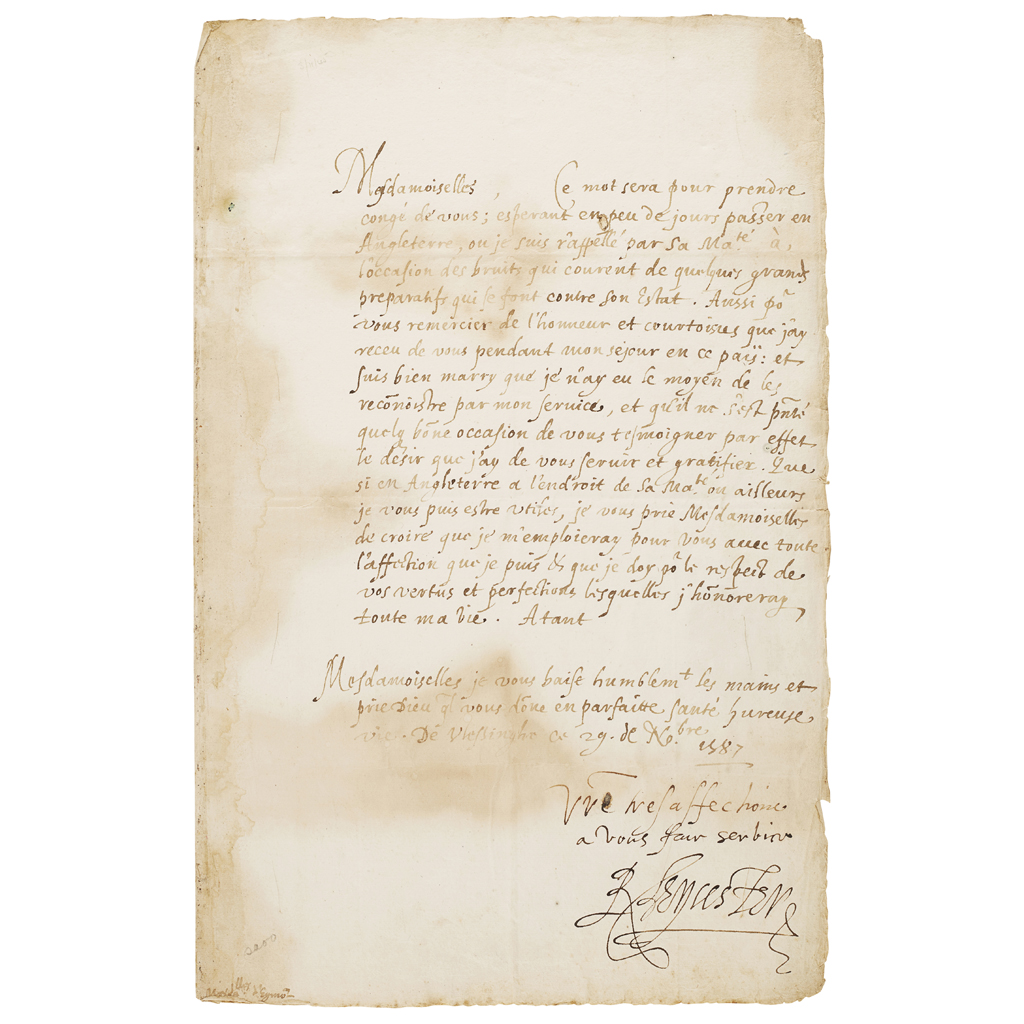 Mesdamoiselles, Ce mot sera pour prendre
congé de vous; esperant en peu de jours passer en
Angleterre, ou je suis r'appellé par sa Ma.té à,
l'occasion des bruits qui courent de quelques grands
preparatifs qui se font contre son Estat. Aussi po.r
vous remercier de l'honneur et courtoisies que j'ay
receu de vous pendant mon sejour en ce païs: et
suis bien marry que je n'ay eu le moyen de les
recōnoistre par mon service, et qu'il ne s'est pn̄té
quelq bōne occasion de vous tesmoigner par effet
le désir que j'ay de vous servir et gratifier. Que
si en Angleterre a l'endroit de sa Ma.té ou ailleurs
je vous puis estre vtiles, je vous prie Mesdamoiselles
de croire que je m'emploieray pour vous avec toute
l'affection que je puis & que je doy po.r le respect de
vos vertus et perfections lesquelles j'hōnoreray
toute ma vie. Atant
Mesdamoiselles je vous baise humblem.t les mains et
prie Dieu q̄ vous dōne en parfaitte santé hureuse
vie. De Vlessinghe ce 29. de No.bre 1587
Vr̄e tresaffectione
a vous fair servicr
R Leycester